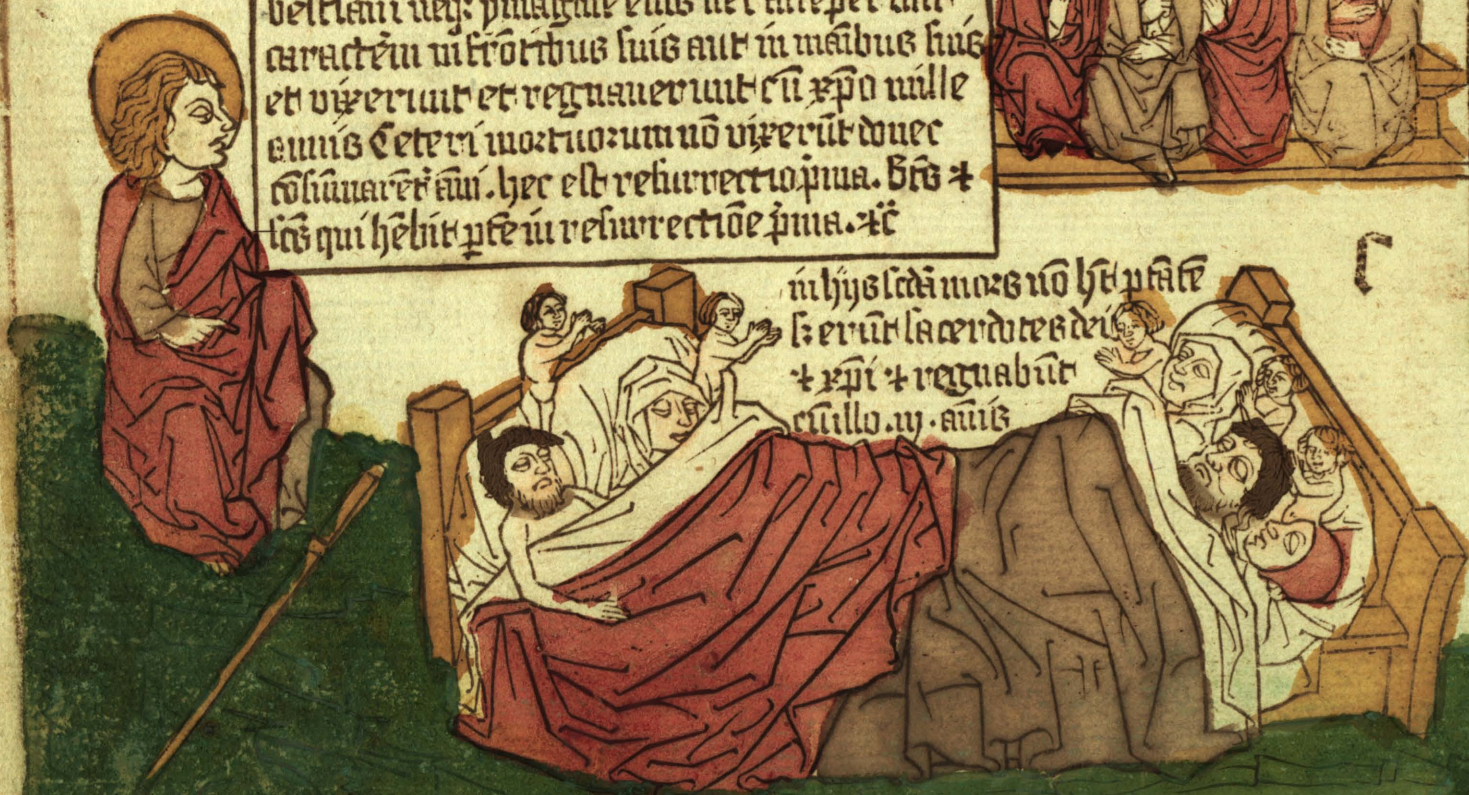 bestiam neq3 ymagine eius nec acceper̄unt
caractē̄m in frōtibus suis aut in maībus suis
et vixerunt et regnauerunt cū xp̄o mille
annis Ceteri mortuorum nō vixerūt donec
cōsūmarēt᷑ anī. hec est resurrectio p̄ma. Bt̄s ⁊
sc̄s qui hēbit p̱tē in resurrectiōe p̄ma. ⁊c̄
in hijs scd̄a mors nō hēt p̄tatē
s; erūt sacerdotes dei
⁊ xp̄i ⁊ regnabūt
cū illo . m . annis